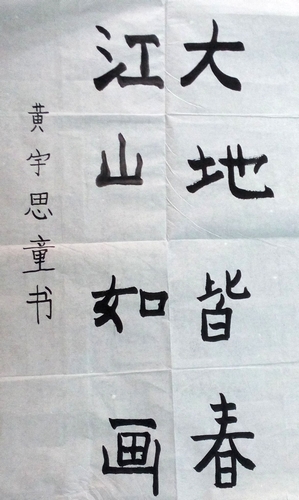 大地皆春
江山如画
黄宇思童书